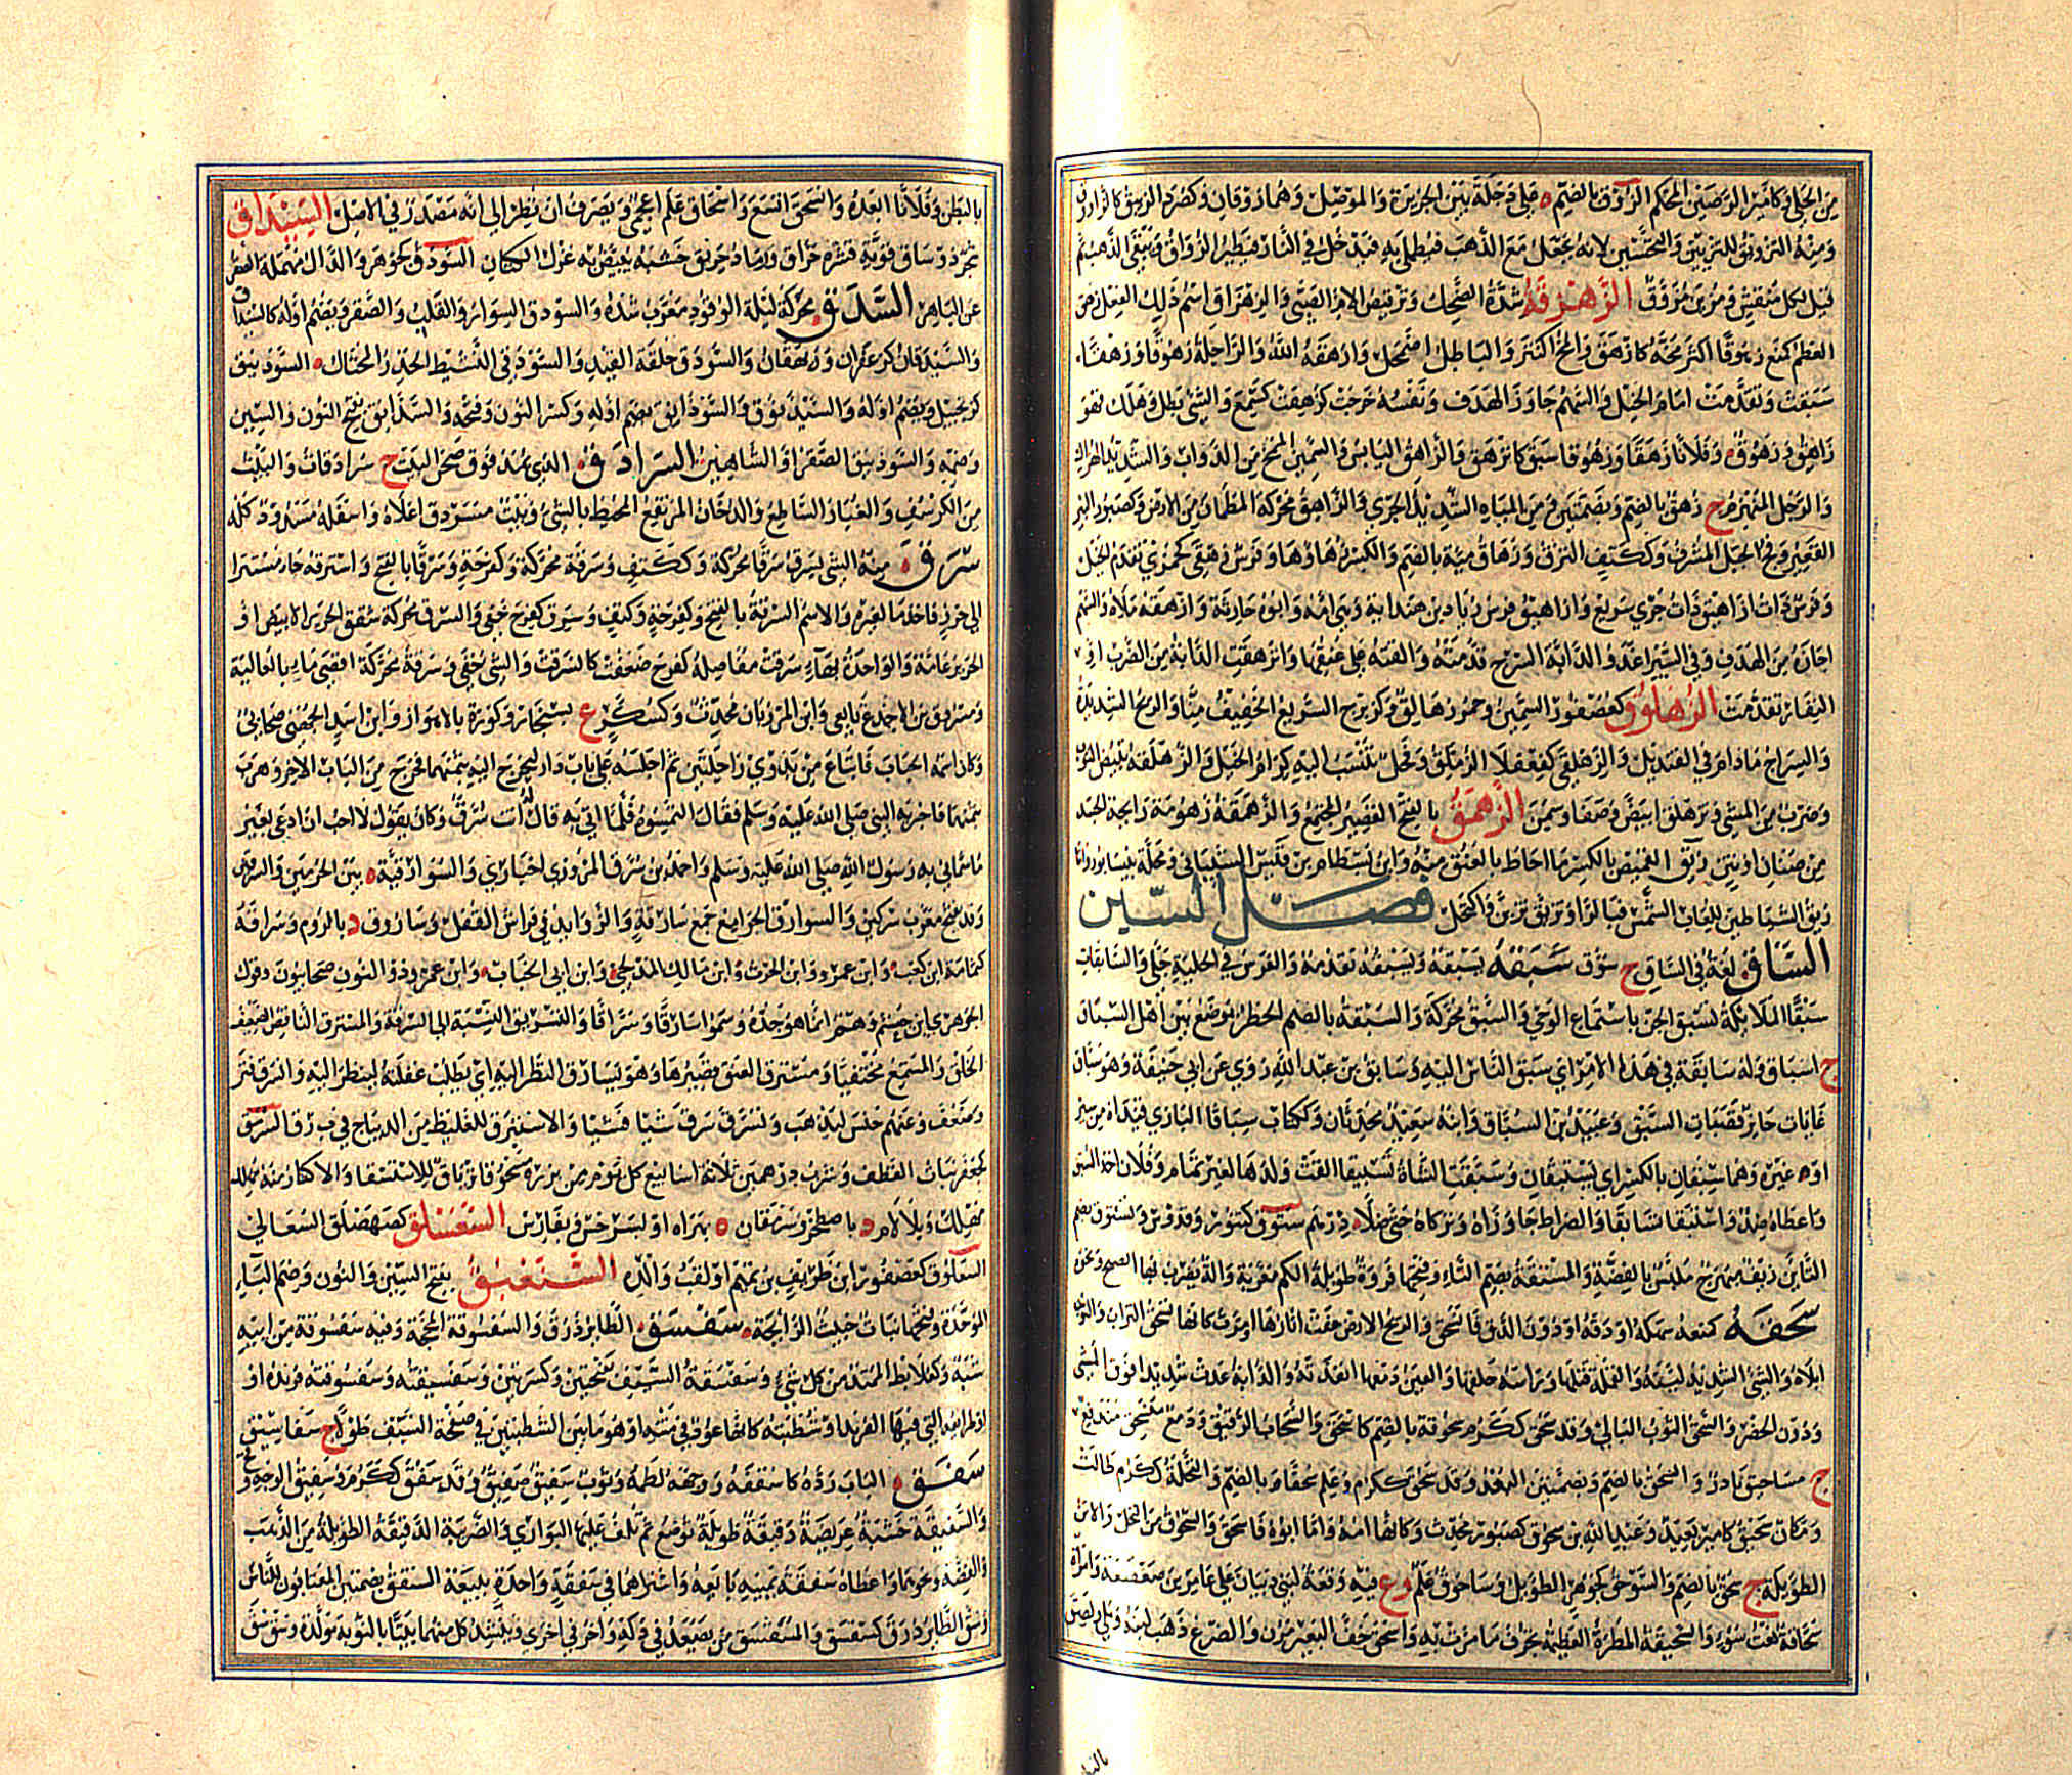 من الحلي وكأمير الرصين المحكم الزوق بالضم ه على دجلة بين الجزيرة والموصل وهما زوقان وكصرد الزئبق كالزاووق
ومنه التزويق للتزيين والتحسين لأنه يجعل مع الذهب فيطلى به فيدخل في النار فيطير الزاوق ويبقى الذهب ثم
قيل لكل منقش ومزين مزوق الزهزقة شدة الضحك وترقيص الأم الصبي والزهزاق اسم ذلك الفعل زهق
العظم كمنع زهوقا اكتز مخه كازهق والمخ اكتنز والباطل اضمحل وازهقه الله والراحلة زهوقا وزهقا
سبقت وتقدمت امام الخيل والسهم جاوز الهدف ونفسه خرجت كزهقت كسمع والشئ بطل وهلك فهو
زاهق وزهوق وفلانا زهقا وزهوقا سبق كانزهق والزاهق اليابس والسمين الممخ من الدواب والشديد الهزال
والرجل المنهزم ج زهق بالضم وبضمتين ومن المياه الشديد الجري والزاهق محركة المطمأن من الارض وكصبور البئر
القعيرة وفج الجبل المشرف وككتف النزق وزهاق مية بالضم والكسر زهاؤها وفرس زهقى كجمزى تقدم الخيل
وفرس ذات ازاهيق ذات جري سريع وازاهيق فرس زياد بن هندابة وهي امه وابوه حارثة وازهقه ملأه والسهم
اجازه من الهدف وفي السير اعد والدابة السرج قدمته والقته على عنقها وانزهقت الدابة من الضرب او
النفار تقدمت الزهلوق كعصفور السمين وحمر زهالق وكزبرج السريع الخفيف منا والريح الشديدة
والسراج مادام في القنديل والزهلقي كفعفلا الزملق وفحل تنسب اليه كرام الخيل والزهلقة تبييض الثوب
وضرب من المشي وتزهلق ابيض وصفا وسمن الزهمق بالفتح القصير المجتمع والزهمقة زهومة رائحة الجسد
من صنان او نتن زيق القميص بالكسر ما احاط بالعنق منه وابن بسطام بن قيس الشيباني ومحلة بنيسابور واما
ريق الشياطين للعاب الشمس فبالراء وتزيق تزين واكتحل فصل السين
الساق لغة في الساق ج سؤق سبقه يسبقه ويسبقه تقدمه والفرس في الحلبة جلى والسابقات
سبقا الملائكة تسبق الجن باستماع الوحي والسبق محركة والسبقة بالضم الخطر يوضع بين أهل السباق
ج اسباق وله سابقة في هذا الامر اي سبق الناس اليه وسابق بن عبد الله روى عن ابي حنيفة وهو سباق
غايات حائز قصبات السبق وعبيد بن السباق وابنه سعيد محدثان وككتاب سباقا البازي قيداه من سير
او غيره وهما سبقان بالكسر اي يستبقان وسبقت الشاة تسبيقا القت ولدها لغير تمام وفلان اخذ السبق
واعطاه ضد واستبقا تسابقا والصراط جاوزاه وتركاه حتى ضلا درهم ستوق كتنور وقدوس وتستوق بضم
التاءين زيف بهرج ملبس بالفضة والمستقة بضم التاء وفتحها فروة طويلة الكم معربة وآلة يضرب بها الصنج ونحوه
سحقه كمنعه سهكه او دقه او دون الدق فانسحق والريح الارض عفت آثارها او مرت كانها تسحق التراب والثوب
ابلاه والشئ الشديد لينه والقملة قتلها ورأسه حلقها والعين دمعها انفذته والدابة عدت شديدا فوق المشي
ودون الحضر والسحق الثوب البالي وقد سحق ككرم سحوقة بالضم كاسحق والسحاب الرقيق ودمع منسحق مندفع
ج مساحيق نادر والسحق بالضم وبضمتين البعد وقد سحق ككرم وعلم سحقا بالضم والنخلة ككرم طالت
ومكان سحيق كامير بعيد وعبد الله بن سحوق كصبور محدث وكانها امه واما ابوه فاسحق والسحوق من النخل والاتن
الطويلة ج سحق بالضم والسوحق كجوهر الطويل وساحوق علم و ع فيه وقعة لبني ذبيان على عامر بن صعصعة وامرأة
سحاقة نعت سوء والسحيقة المطرة العظيمة تجرف ما مرت به واسحق خف البعير مرن والضرع ذهب لبنه وبلي ولصق
بالبطن
بالبطن وفلانا ابعده وانسحق اتسع واسحاق علم اعجمي ويصرف ان نظر الى انه مصدر في الاصل السنداق
شجر ذو ساق قوية قشره حراق ورماد حريق خشبه يبيض به غزل الكتان السودق كجوهر والدال مهملة الصقر
عن الباهر السذق محركة ليلة الوقود معرب سذه والسوذق السوار والقلب والصقر ويضم اوله كالسيذاق
والسيذقان كزعفران وريهقان والسوذق حلقة القيد والسوذقي النشيط الحذر المحتال السوذنيق
كزنجبيل ويضم اوله والسيذنوق والسوذانق بضم اوله وكسر النون وفتحه والسذانق بفتح النون والسين
وضمه والسوذنيق الصقر او الشاهين السرادق الذي يمد فوق صحن البيت ج سرادقات والبيت
من الكرسف والغبار الساطع والدخان المرتفع المحيط بالشئ وبيت مسردق اعلاه واسفله مشدود كله
سرق منه الشئ يسرق سرقا محركة وككتف وسرقة محركة وكفرحة وسرقا بالفتح واسترقه جاء مستترا
الى حرز فاخذ مالا لغيره والاسم السرقة بالفتح وكفرحة وكتف وسرق كفرح خفي والسرق محركة شقق الحرير الابيض او
الحرير عامة والواحدة بهاء سرقت مفاصله كفرح ضعفت كانسرقت والشئ خفي وسرقة محركة اقصى ماء بالعالية
ومسروق بن الاجدع تابعي وابن المرزبان محدث وكسكر ع بسنجار وكورة بالاهواز وابن اسد الجهني صحابي
وكان اسمه الحباب فابتاع من بدوي راحلتين ثم اجلسه على باب دار ليخرج اليه بثمنهما فخرج من الباب الآخر وهرب
بثمنهما فاخبر به النبي صلى الله عليه وسلم فقال التمسوه فلما اتي به قال له انت سرق وكان يقول لا احب ان ادعى بغير
ما سماني به رسول الله صلى الله عليه وسلم واحمد بن سرق المروزي اخباري والسوارقية ه بين الحرمين والسرقين
وقد يفتح معرب سركين والسوارق الجوامع جمع سارقة والزوايد في فراش القفل وساروق د بالروم وسراقة
كثمامة ابن كعب وابن عمرو وابن الحرث وابن مالك المدلجي وابن ابي الحباب وابن عمرو ذو النون صحابيون وقول
الجوهري ابن جعشم وهم انما هو جده وسموا سارقا وسراقا والتسريق النسبة الى السرقة والمسترق الناقص الضعيف
الخلق والمستمع مختفيا ومسترق العنق قصيرها وهو يسارق النظر اليه اي يطلب غفلة لينظر اليه وانسرق فتر
وضعف وعنهم خنس ليذهب وتسرق سرق شيئا فشيئا والاستبرق للغليظ من الديباج في ب ر ق السرمق
كجعفر نبات القطف وشرب درهمين ثلاثة اسابيع كل يوم من بزره مسحوقا ترياق للاستسقا والاكثار منه مهلك
مهلك وبلا لام د باصطخر وسرمقان ه بهراة او بسرخس وبفارس السعسلق كصهصلق السعالي
السعلوق كعصفور ابن طريف بن تميم او لقب والده السنعبق بفتح السين والنون وضم الباء
الموحدة وفتحها نبات خبيث الرائحة سفسق الطائر ذرق والسفسوقة المحجة وفيه سفسوقة من ابيه
شبه وكعلابط الممتد من كل شئ وسفسقة السيف بفتحتين وكسرتين وسفسيقته وسفسوقته فرنده او
او طرائقه التي فيها الفرند او شطبته كانها عمود في متنه او هو ما بين الشطبتين في صفحة السيف طولا ج سفاسق
سفق الباب رده كاسفقه ووجهه لطمه وثوب سفيق صفيق وقد سفق ككرم وسفيق الوجه وقح
والسفيقة خشبة عريضة دقيقة طويلة توضع ثم تلف عليها البواري والضربة الدقيقة الطويلة من الذهب
والفضة ونحوهما واعطاه سفقة يمينه بايعه واشتراهما في سفقة واحدة ببيعة السقق بضمتين المغتابون للناس
وسق الطائر ذرق كسقسق والمسقسق من يصعد في دكة وآخر في اخرى وينشد كل منهما بيتا بالنوبة مولدة وسق سق